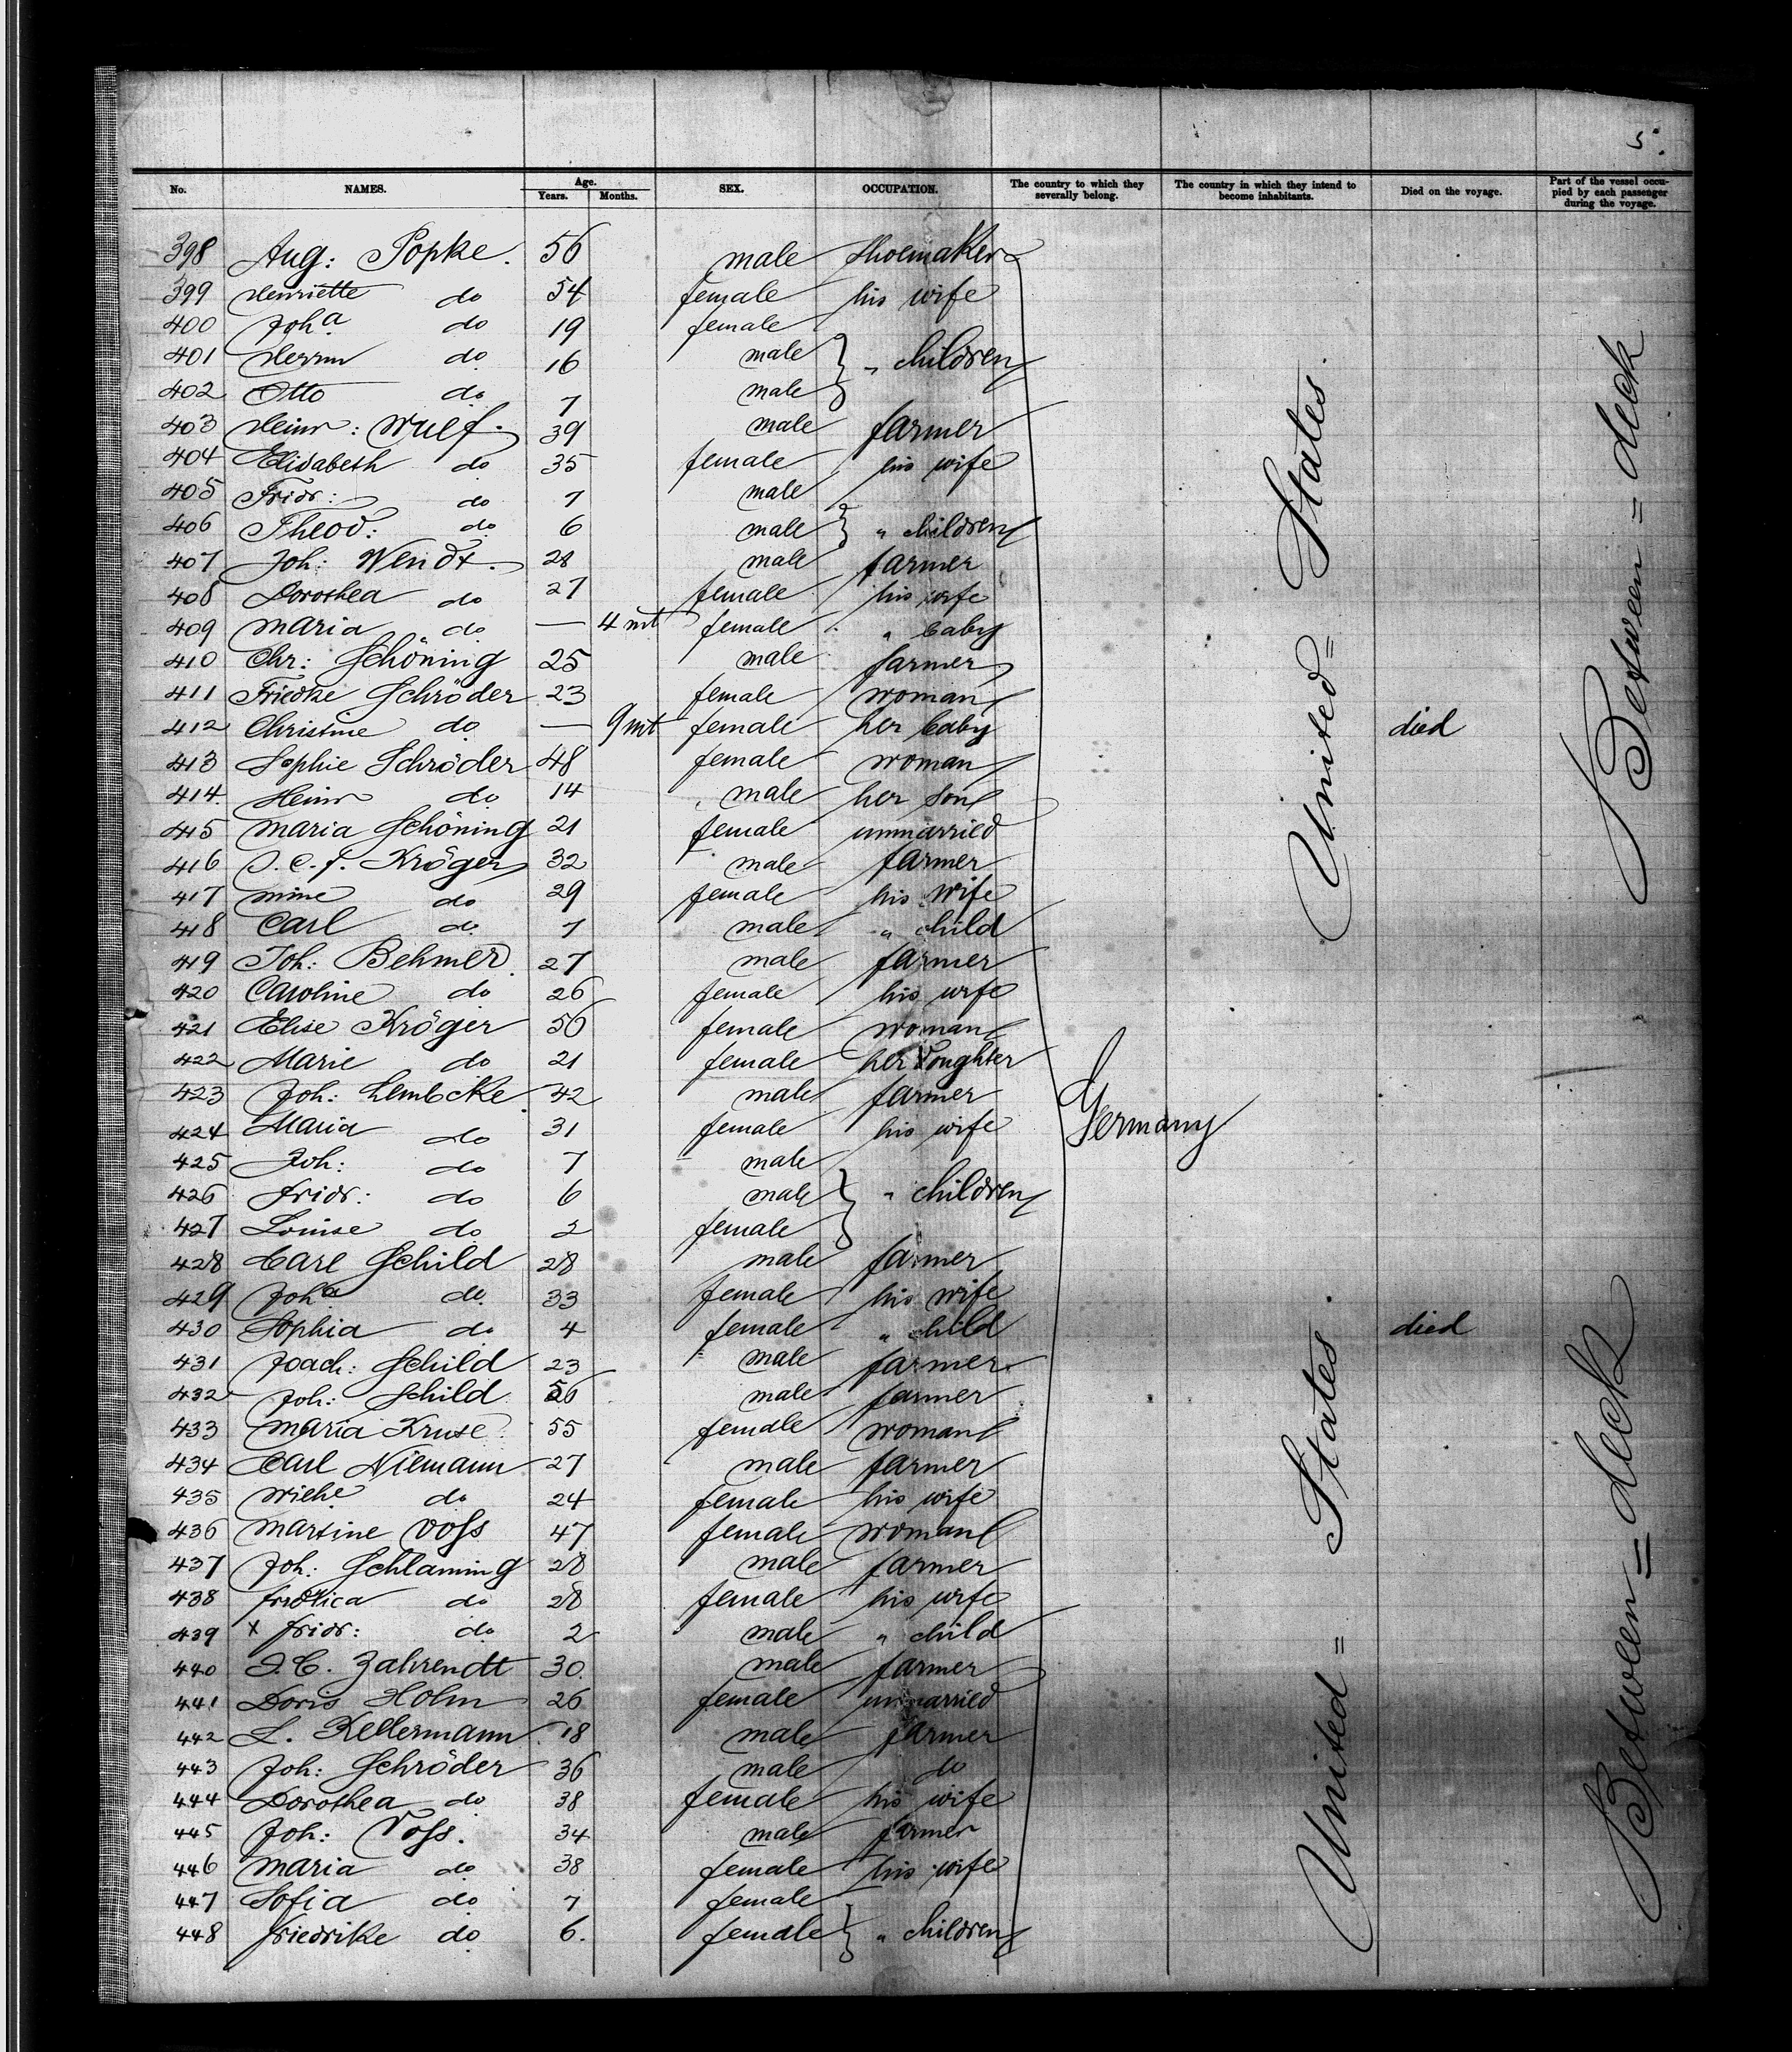 5.
No. NAMES. Age. Years. Months. SEX. OCCUPATION. The country to which they severally belong. The country in which they intend to become inhabitants. Died on the voyage. Part of the vessel occupied by each passenger during the voyage.
398 Aug: Popke. 56 male shoemaker
399 Henriette do 54 female his wife
400 Joh.a do 19 female
401 Herm do 16 male } " children
402 Otto do 7 male
403 Heinr: Wulf. 39 male farmer
404 Elisabeth do 35 female his wife
405 Fridr: do 7 male
406 Theod: do 6 male } " children
407 Joh: Wendt. 28 male farmer
408 Dorothea do 27 female his wife
409 Maria do — 4 mt female " baby
410 Chr: Schöning 25 male farmer
411 Friedke Schröder 23 female woman
412 Christine do — 9 mt female her baby died
413 Sophie Schröder 48 female woman
414. Heinr do 14 male her son
415 Maria Schöning 21 female unmarried
416 J. C. F. Kröger 32 male farmer
417 Mine do 29 female his wife
418 Carl do 7 male " child
419 Joh: Behmer 27 male farmer
420 Caroline do 26 female his wife
421 Elise Kröger 56 female woman
422 Marie do 21 female her Doughter
423 Joh: Lembcke 42 male farmer
424 Maria do 31 female his wife
Germany
425 Joh: do 7 male
426 Fridr: do 6 male } " children
427 Louise do 2 female
428 Carl Schild 28 male farmer
429 Joh.a do 33 female his wife
430 Sophia do 4 female " child died
431 Joach: Schild 23 male farmer
432 Joh: Schild 56 male farmer
433 Maria Kruse 55 female woman
434 Carl Niemann 27 male farmer
435 Wiehe do 24 female his wife
436 Martine Voss 47 female woman
437 Joh: Schlaming 28 male farmer
438 do 28 female his wife
439 x Fridr: do 2 male " child
440 J. C. Zahrendt 30 male farmer
441 Doris Holm 26 female unmarried
442 L. Kellermann 18 male farmer
443 Joh: Schröder 36 male do
444 Dorothea do 38 female his wife
445 Joh: Voss. 34 male farmer
446 Maria do 38 female his wife
447 Sofia do 7 female
448 Friedrike do 6. female } " children
United = States.
United = States.
Between = deck
Between = deck